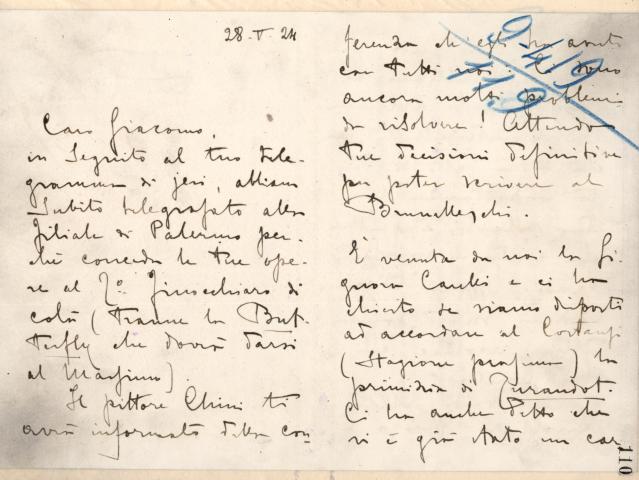 28-V-24
Caro Giacomo,
in seguito al tuo tele-
gramma di jeri, abbiamo
subito telegrafato alla
filiale di Palermo per-
chè conceda le tue ope-
re al Finocchiaro di
colà (tranne la But-
terfly che dovrà darsi
al Massimo)
Il pittore Chini ti
avrà informato della con-
ferenza ch'egli ha avuto
con tutti noi: Ci sono
ancora molti problemi
da risolvere! Attendo
tue decisioni definitive
per poter scrivere al
Brunelleschi.
È venuta da noi la Si-
gnora Carelli e ci ha
chiesto se siamo disposti
ad accordare al Costanzi
(Stagione prossima) la
primizia di Turandot.
Ci ha anche detto che
vi è già stato un car
110